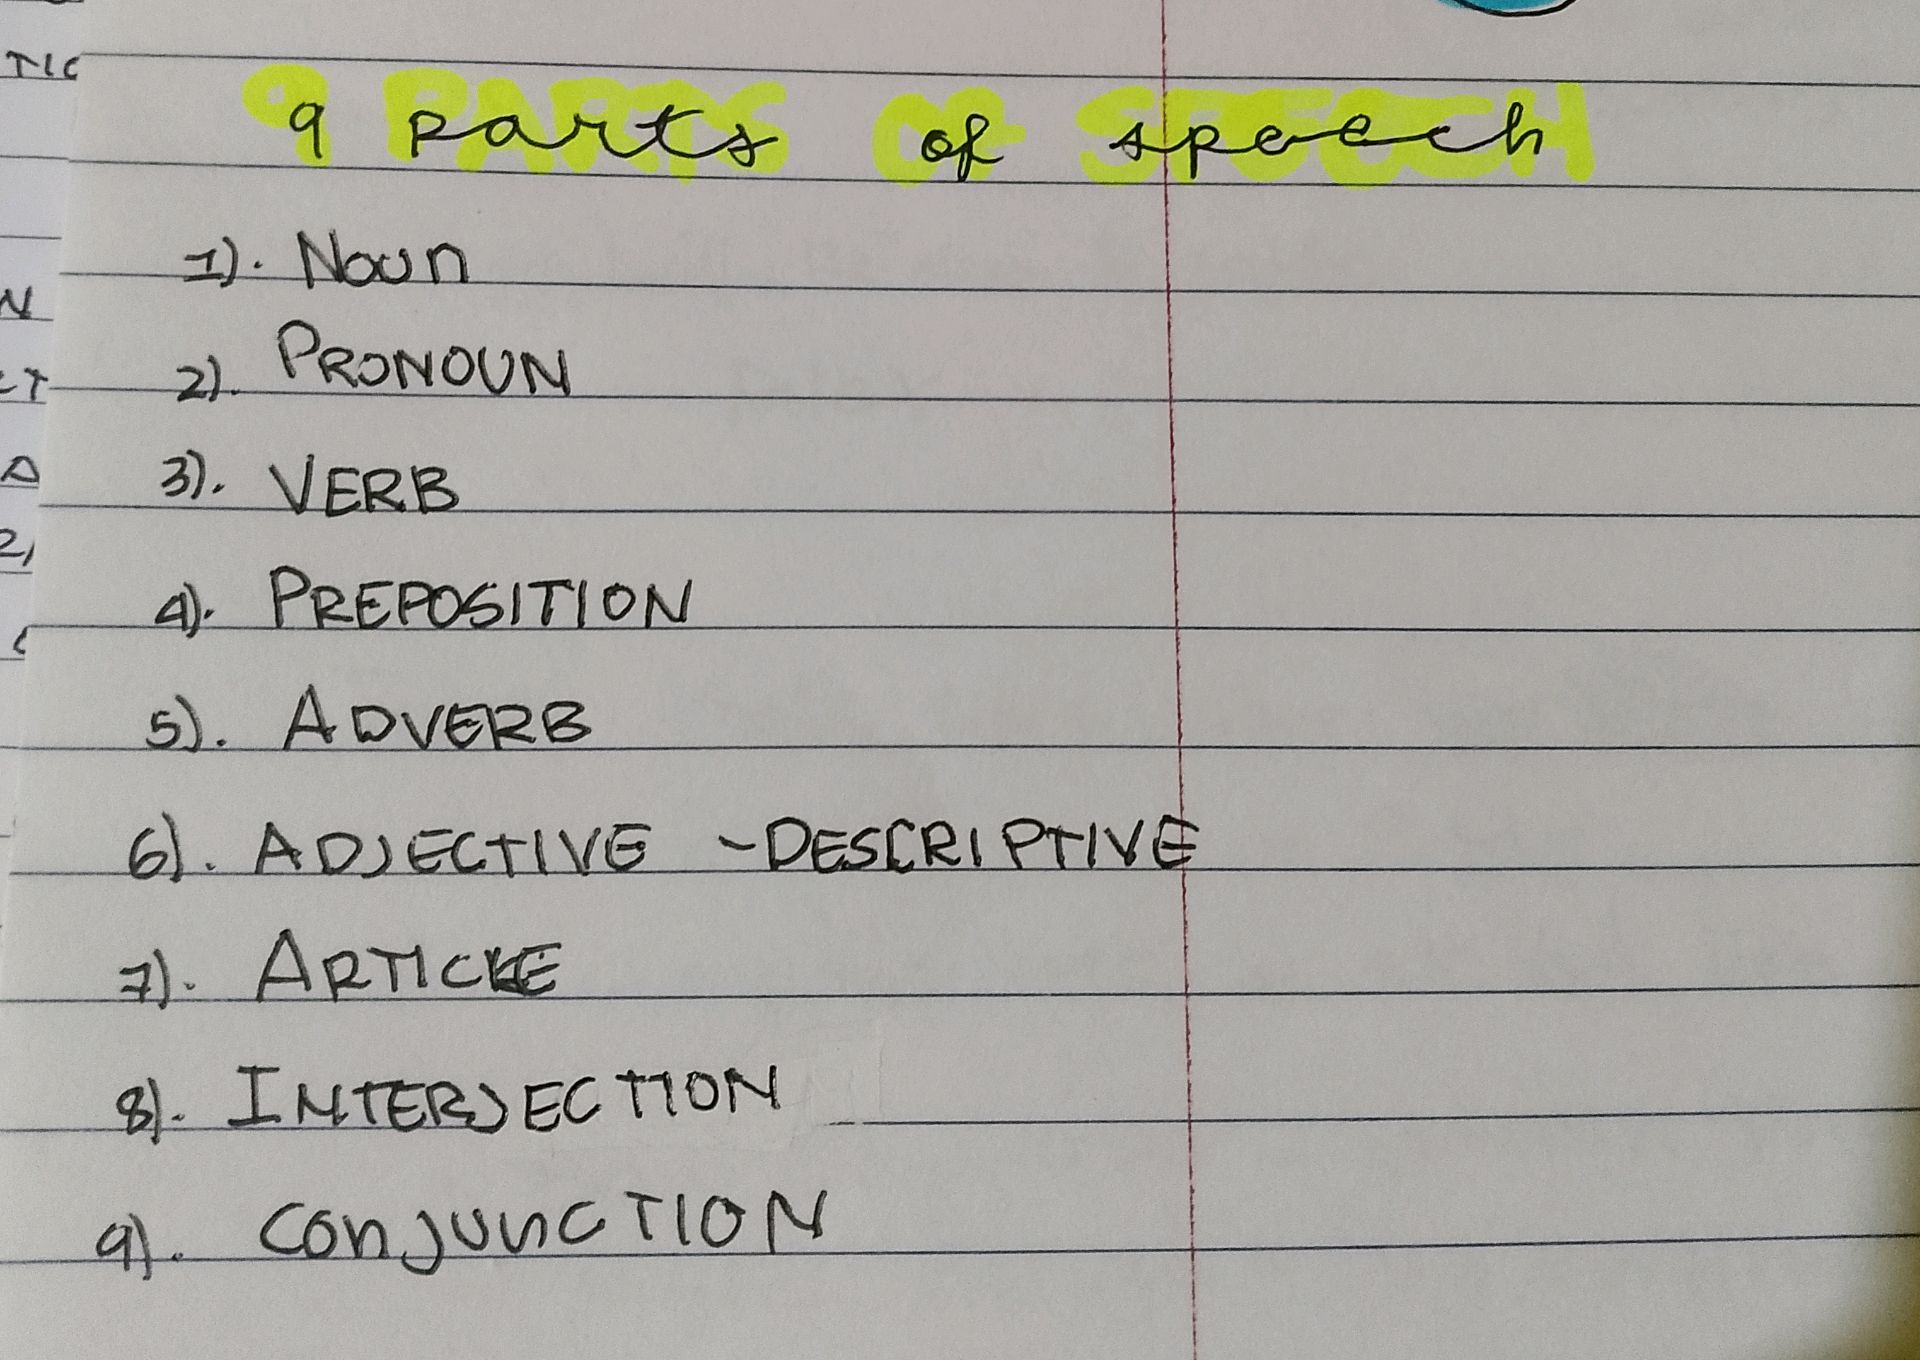 TIC
9 parts of speech
1). Noun
N
2). PRONOUN
3). VERB
A
4). PREPOSITION
5). ADVERB
6). ADJECTIVE -DESCRIPTIVE
7). ARTICLE
8). INTERJECTION
9). CONJUNCTION